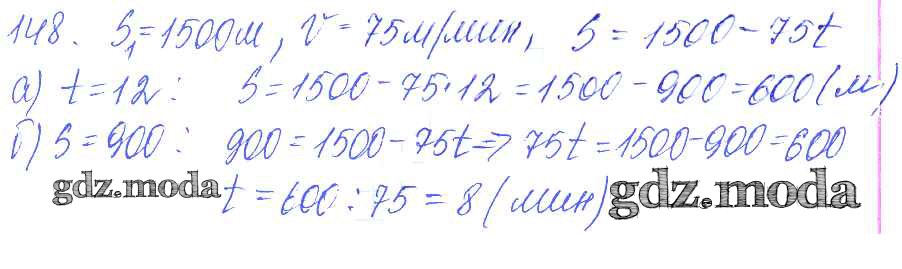 148. S₁=1500м, V=75м/мин, S=1500-75t
а) t=12: S=1500-75·12=1500-900=600(м)
б) S=900: 900=1500-75t=>75t=1500-900=600
gdz.moda t=600:75=8(мин) gdz.moda